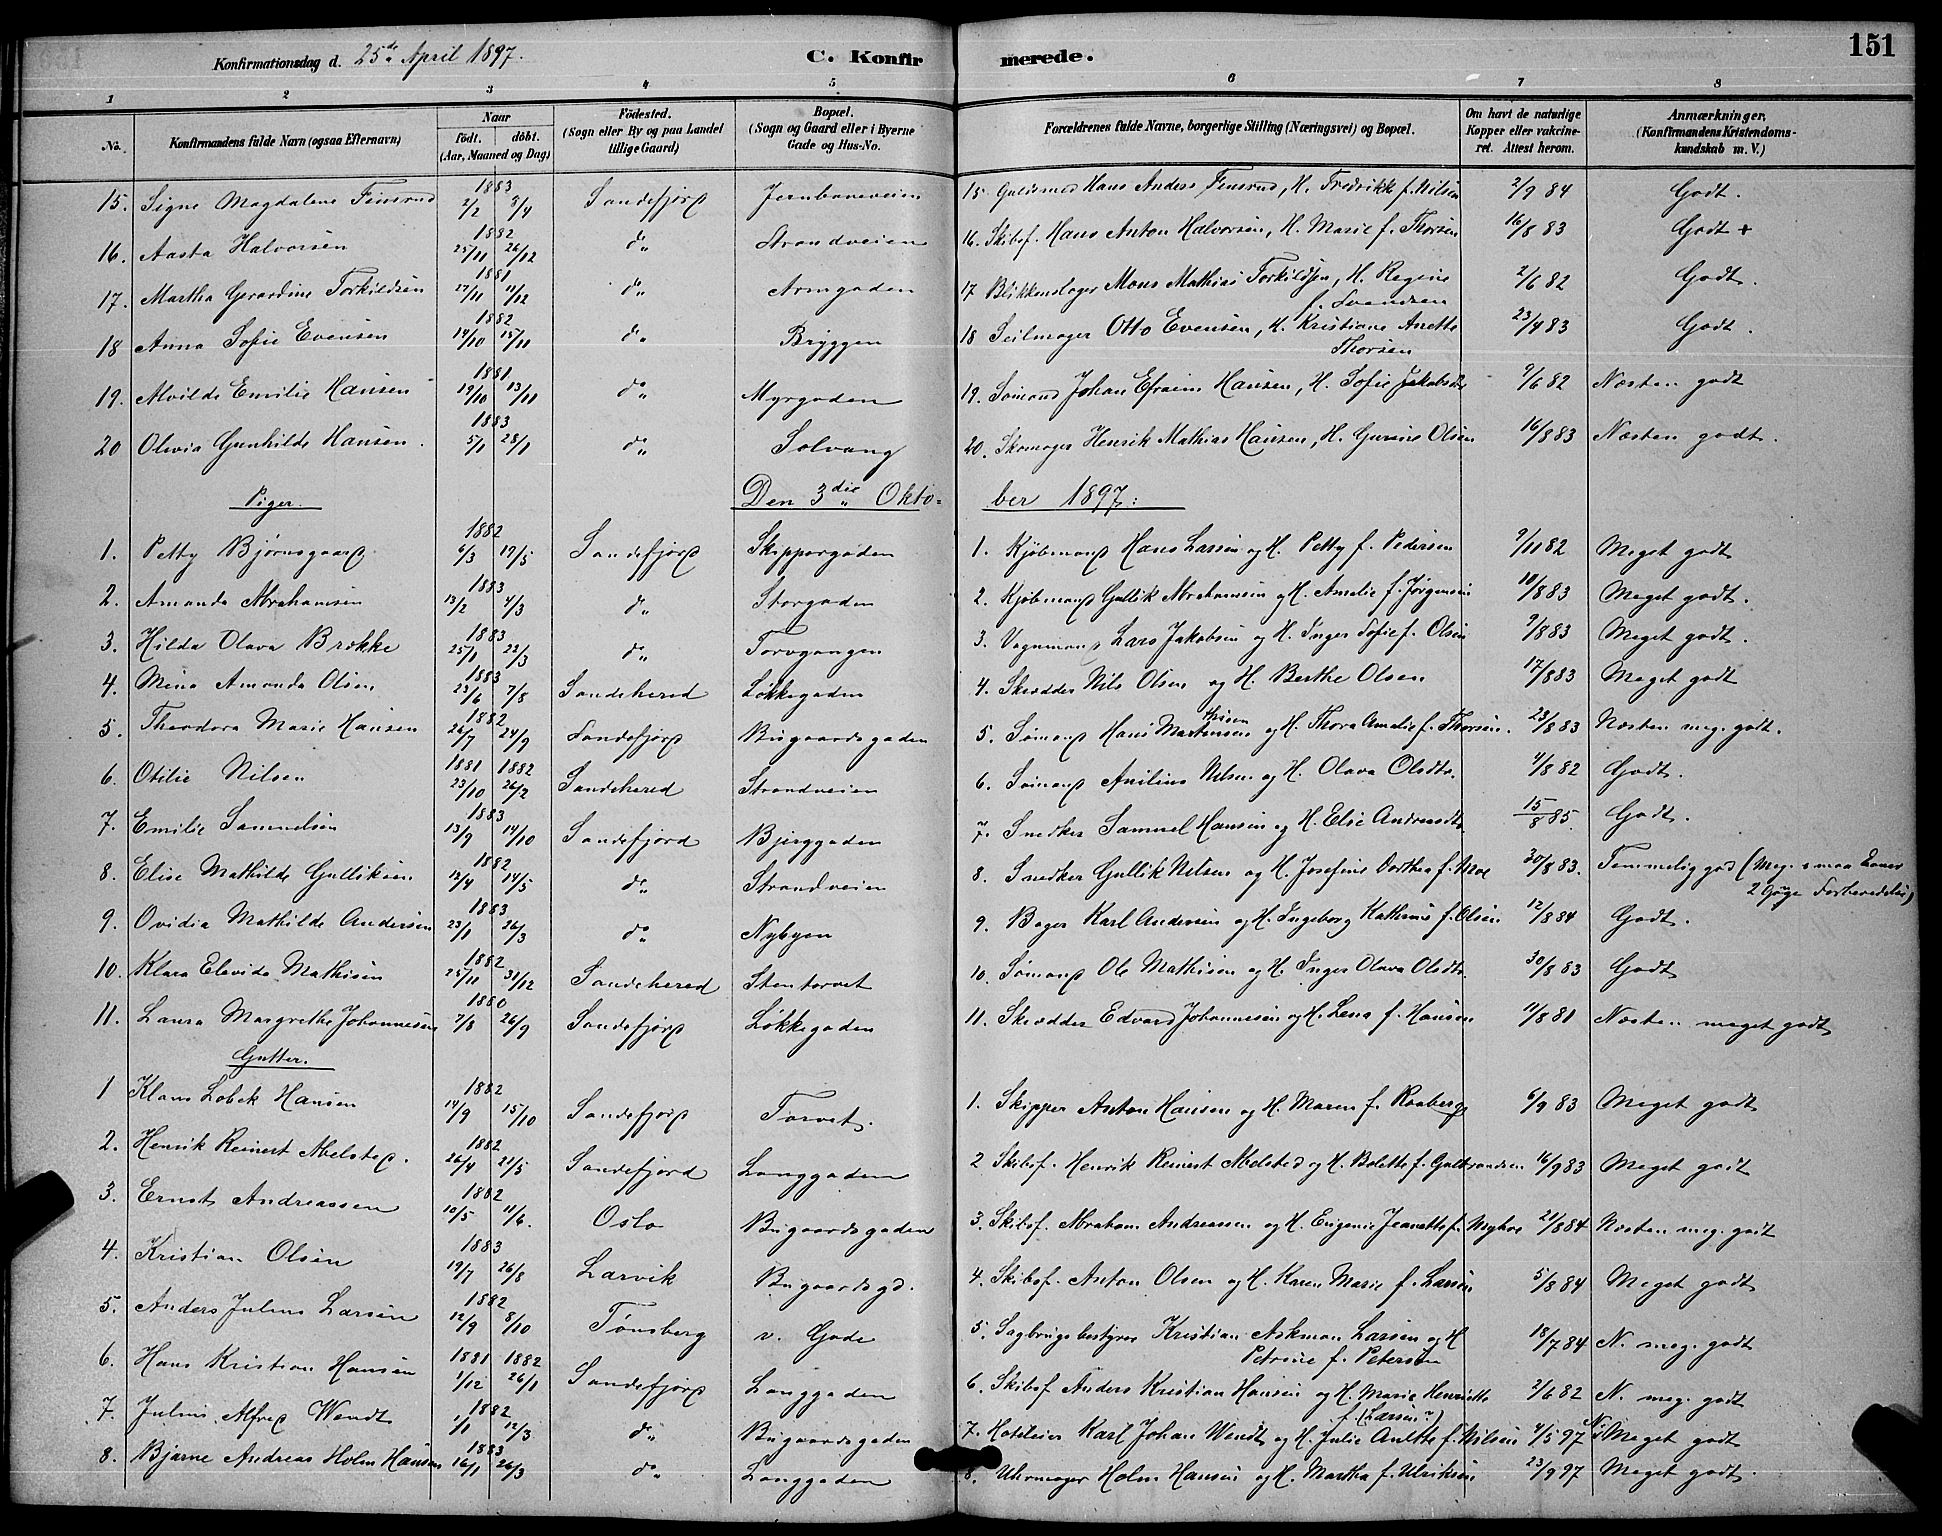 Konfirmationsdag d. 25de April 1897. C. Konfirmerede. 151
1 2 3 4 5 6 7 8
No. Konfirmandens fulde Navn (ogsaa Efternavn) Naar født. døbt. (Aar, Maaned og Dag) Fødested. (Sogn eller By og paa Landet tillige Gaard) Bopæl. (Sogn og Gaard eller i Byerne Gade og Hus-No. Forældrenes fulde Navne, borgerlige Stilling (Næringsvei) og Bopæl. Om havt de naturlige Kopper eller vakcineret. Attest herom. Anmærkninger, (Konfirmandens Kristendomskundskab m. V.)
15. Signe Magdalene Finsrud 1883 2/2 8/4 Sandefjord Jernbaneveien 15. Guldsmed Hans Anders Finsrud, H. Fredrikke f. Nilsen 2/9 84 Godt.
16. Aasta Halvorsen 1882 25/11 26/12 do Strandveien 16. Skibsf. Hans Anton Halvorsen, H. Marie f. Thorsen 16/8 83 Godt +
17. Martha Gerardine Torkildsen 1881 17/11 11/12 do Armgaden 17 Blikkenslager Mons Mathias Torkildsen, H. Regine f. Svendsen 2/6 82 Godt.
18 Anna Sofie Evensen 1882 14/10 15/11 do Bryggen 18 Seilmager Otto Evensen, H. Kristiane Anette Thorsen 23/4 83 Godt.
19. Alvilde Emilie Hansen 1881 19/10 13/11 do Myrgaden 19. Sømand Johan Efraim Hansen, H. Sofie Jakobsdtr 9/6 82 Næsten godt
20 Olivia Gunhilde Hansen. 1883 5/1 28/1 do Solvang 20. Skomager Henrik Mathias Hansen, H. Gurine Olsen 16/8 83 Næsten godt.
Piger. Den 3die Oktober 1897:
1. Petty Bjørnsgaard 1882 6/3 19/5 Sandefjord Skippergaden 1. Kjøbmand Hans Larsen og H. Petty f. Pedersen 9/11 82 Meget godt
2. Amanda Abrahamsen 1883 13/2 4/3 do Storgaden 2. Kjøbmand Gullik Abrahamsen og H. Amalie f. Jørgensen 10/8 83 Meget godt.
3. Hilda Olava Brække 1883 25/1 22/3 do Torvgangen 3. Vognmand Lars Jakobsen og H. Inger Sofie f. Olsen 9/8 83 Meget godt.
4. Mina Amanda Olsen 1883 23/6 7/8 Sandehered Løkkegaden 4. Skrædder Nils Olsen og H. Berthe Olsen 17/8 83 Meget godt
5. Theodora Marie Hansen 1882 26/7 24/9 Sandefjord Bugaardsgaden 5. Sømand Hans Martinsen og H. Thora Amalie f. Thorsen. 23/8 83 Næsten meg. godt.
6. Otilie Nilsen 1881 1882 23/10 26/2 Sandehered Strandveien 6. Sømand Anilius Nilsen og H. Olava Olsdtr. 4/8 82 Godt.
7. Emilie Samuelsen 1883 13/9 14/10 Sandefjord Bjerggaden 7. Snedker Samuel Hansen og H. Elise Andreasdtr 15/8 85. Godt.
8. Elise Mathilde Gulliksen 1882 12/4 14/5 do Strandveien 8. Snedker Gullik Nilsen og H. Josefine Dorthea f. Moe 30/8 83. Temmelig god (Meg. smaa Evner 2 Gge Forberedelse)
9. Ovidia Mathilde Andersen 1883 23/1 26/3 do Nybyen 9. Bager Karl Andersen og H. Ingeborg Kathrine f. Olsen 12/8 84 Godt.
10. Klara Elevida Mathisen 1882 25/11 31/12 Sandehered Stentorvet 10. Sømand Ole Mathisen og H. Inger Olava Olsdtr. 30/8 83 Godt
11. Laura Margrethe Johannesen 1880 7/8 26/9 Sandefjord Løkkegaden 11. Skrædder Edvard Johannesen og H. Lena f. Hansen 11/8 81 Næsten meget godt
Gutter.
1 Klaus Lobek Hansen 1882 14/9 15/10 Sandefjord Torvet. 1. Skipper Anton Hansen og H. Maren f. Raaberg 6/9 83 Meget godt
2. Henrik Reinert Melsted. 1882 26/4 21/5 Sandefjord Langgaden 2 Skibsf. Henrik Reinert Melsted og H. Bolette f. Gulbrandsen 16/9 83 Meget godt
3. Ernst Andreassen 1882 10/5 11/6. Oslo Bugaardsgaden 3. Skibsf. Abraham Andreassen og H. Eugenie Jeanette f. 21/8 84 Næsten meg. godt
4. Kristian Olsen 1883 19/7 26/8 Larvik Bugaardsgd. 4. Skibsf. Anton Olsen og H. Karen Marie f. Larsen 5/8 84 Meget godt
5. Anders Julius Larsen 1882 12/9 8/10 Tønsberg v. Gade 5. Sagbrugsbestyrer Kristian Askman Larsen og H Petrine f. Petersen 18/7 84 N. meg. godt
6. Hans Kristian Hansen 1881 1882 1/12 26/1 Sandefjord Langgaden 6. Skibsf Anders Kristian Hansen og H. Marie Henriette f. (Larsen?) 2/6 82 N. meg. godt
7. Julius Alfred Wendt 1882 1/1 12/3 do Bugaardsgaden 7. Hoteleier Karl Johan Wendt og H. Julie Anette f. Nilsen 4/5 97 N. Meget godt
8. Bjarne Andreas Holm Hansen 1883 16/1 26/3 do Langgaden 8. Uhrmager Holm Hansen og H. Martha f. Ulriksen 23/9 97 Meget godt.